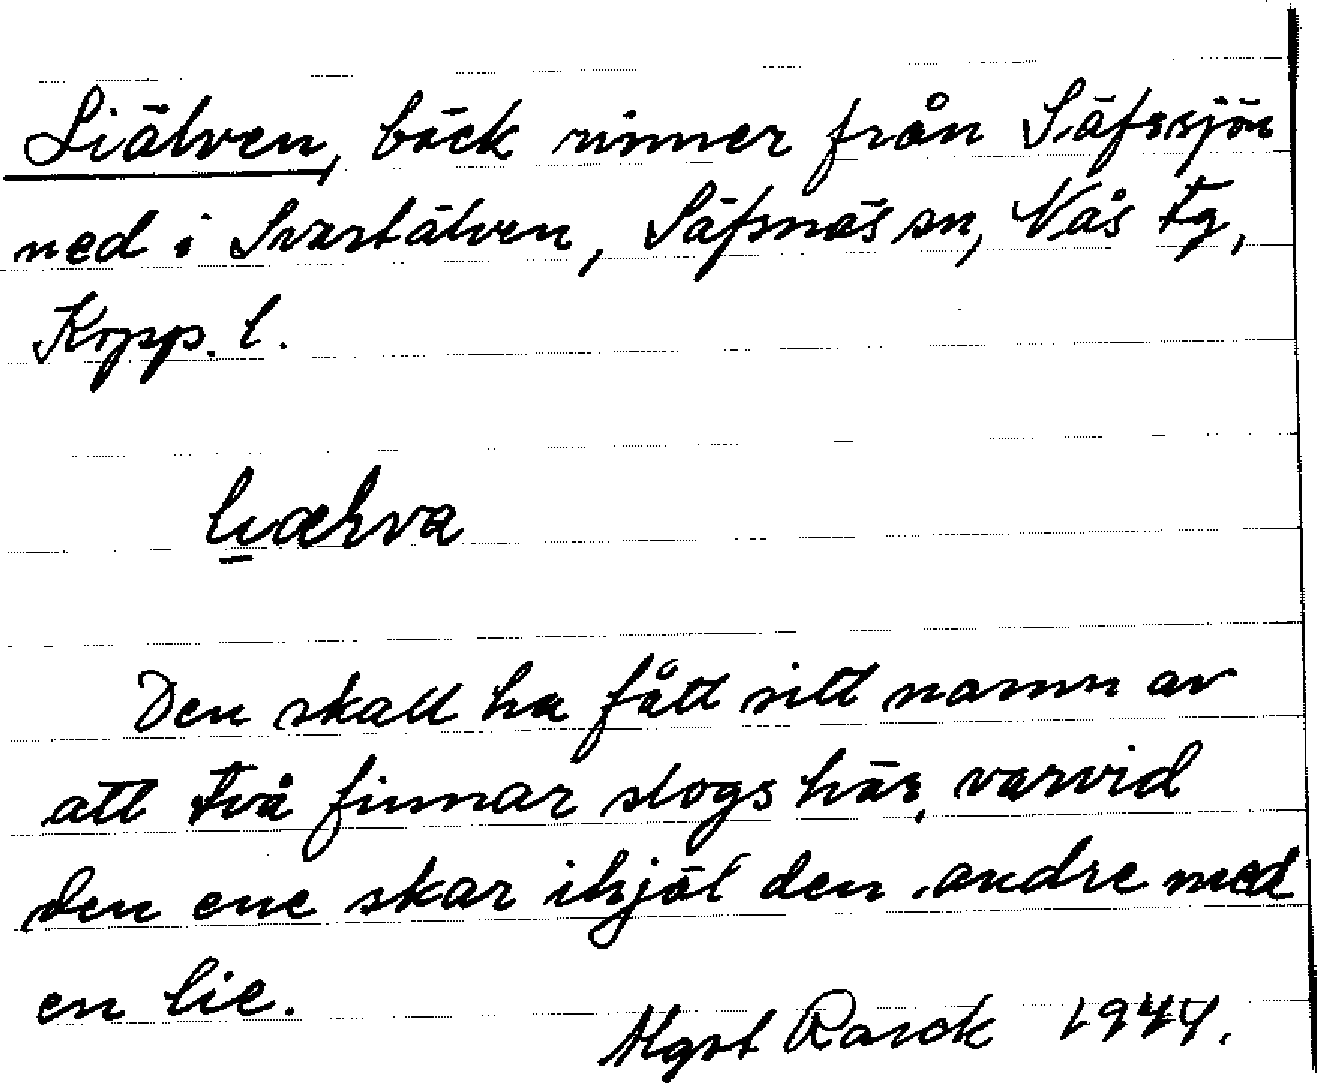 Liälven, bäck rinner från Säfssjön
ned i Svartälven, Säfsnäs sn, Nås tg,
Kopp. l.
Den skall ha fått sitt namn av
att två finnar slogs här, varvid
den ene skar ihjäl den andre med
en lie.
1944.